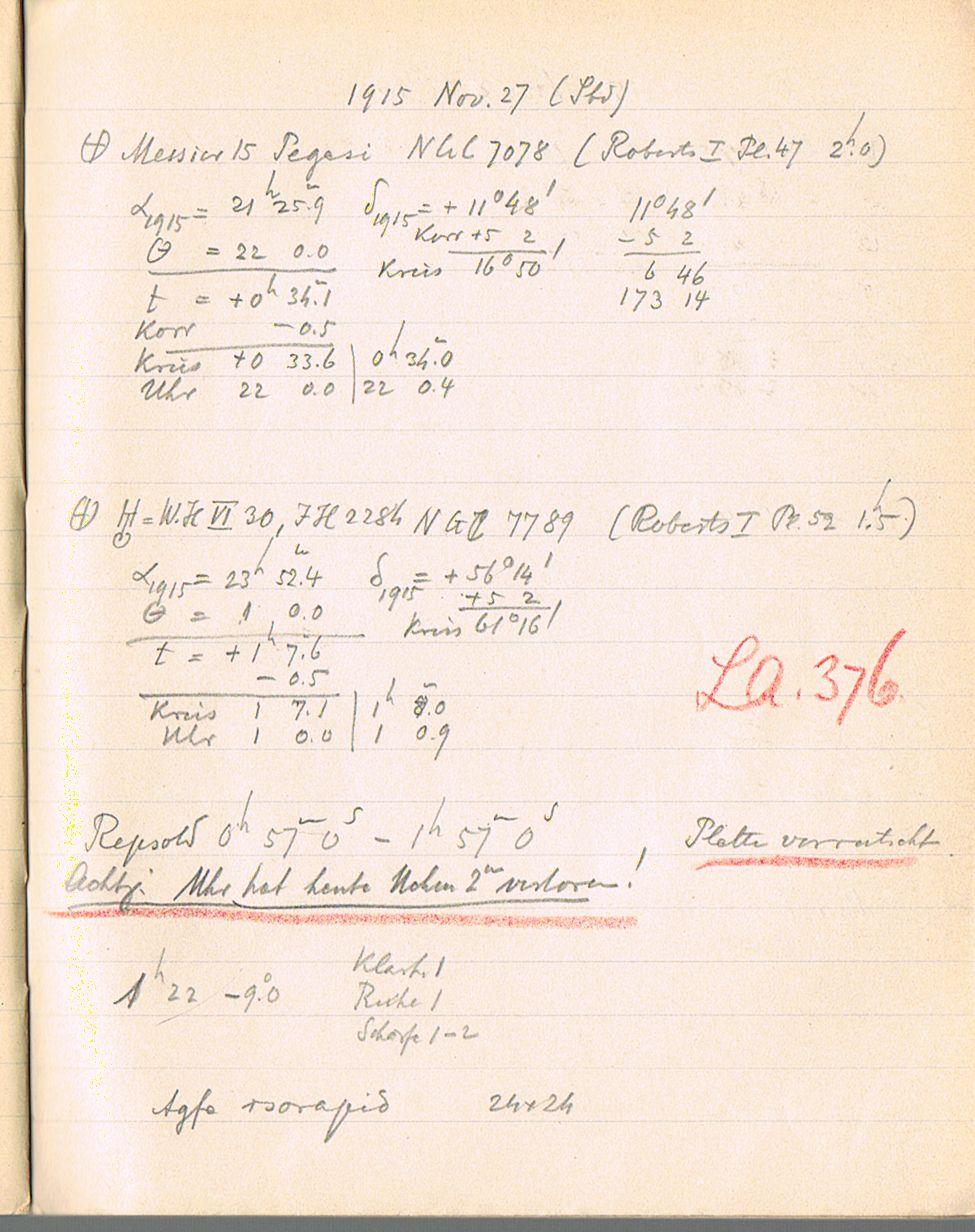 1915 Nov. 27 (Sbd)
⊕ Messier 15 Pegasi NGC 7078 (Roberts I Pl. 47 2ʰ.0)
α₁₉₁₅ = 21ʰ 25ᵐ.9 δ₁₉₁₅ = + 11° 48′ 11° 48′
Θ = 22 0.0 Korr +5 2 − 5 2
Kreis 16° 50′ 6 46
t = +0ʰ 34ᵐ.1 173 14
Korr − 0.5
Kreis +0 33.6 | 0ʰ 34ᵐ.0
Uhr 22 0.0 | 22 0.4
⊕ H = W.H VI 30, JH 2284 NGC 7789 (Roberts I Pl. 52 1ʰ.5)
α₁₉₁₅ = 23ʰ 52ᵐ.4 δ₁₉₁₅ = + 56° 14′
Θ = 1 0.0 +5 2
Kreis 61° 16′
t = +1ʰ 7.6
− 0.5
Kreis 1 7.1 | 1ʰ 8ᵐ.0
Uhr 1 0.0 | 1 0.9
LA. 376
Repsold 0ʰ 57ᵐ 0ˢ − 1ʰ 57ᵐ 0ˢ Platte verrutscht
Achtg: Uhr hat heute 2ᵐ verloren!
1ʰ 22 −9°.0 Klarh. 1
Ruhe 1
Schärfe 1−2
Agfa Isorapid 24×24